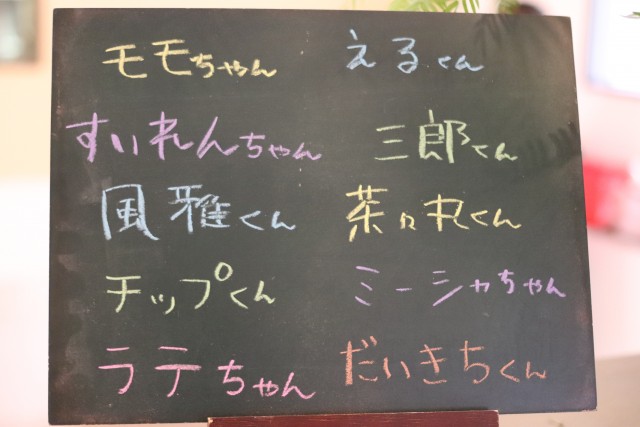 モモちゃん えるくん
すいれんちゃん 三郎くん
風雅くん 茶々丸くん
チップくん ミーシャちゃん
ラテちゃん だいきちくん